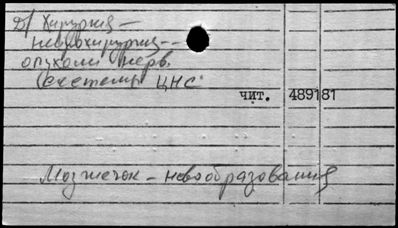 Д/ Хирургия –
нейрохирургия –
опухоли нерв.
системы ЦНС
чит. 489181
Мозжечок – новообразования